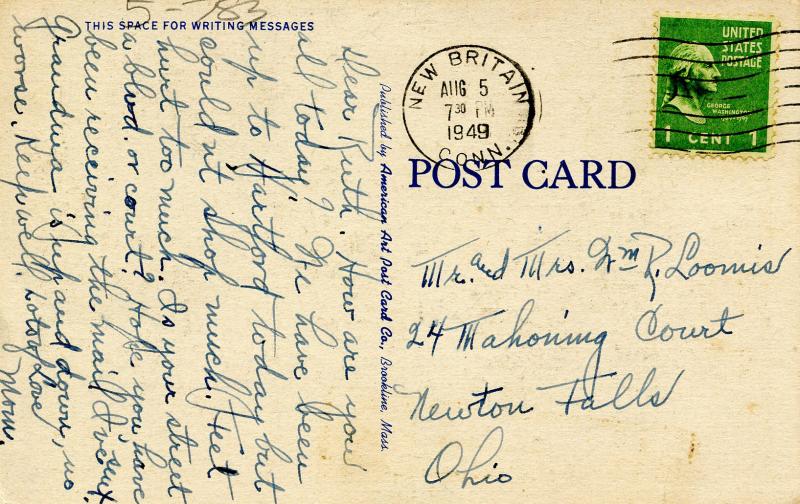 THIS SPACE FOR WRITING MESSAGES
Dear Ruth. How are you
all today? We have been
up to Hartford today but
couldn't shop much. Feet
hurt too much. Is your street
a blvd. or court? Hope you have
been receiving the mail I've sent.
Grandma is up and down, no
worse. Keep well. Lots of Love
Mom.
Published by American Art Post Card Co., Brookline, Mass.
NEW BRITAIN
AUG 5
7 30 PM
1949
CONN.
UNITED
STATES
POSTAGE
GEORGE
WASHINGTON
1 CENT 1
POST CARD
Mr. and Mrs. Wm R. Loomis
24 Mahoning Court
Newton Falls
Ohio